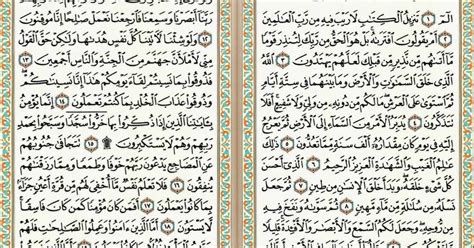 الٓمٓ ١ تَنزِيلُ ٱلْكِتَٰبِ لَا رَيْبَ فِيهِ مِن رَّبِّ ٱلْعَٰلَمِينَ
٢ أَمْ يَقُولُونَ ٱفْتَرَىٰهُ بَلْ هُوَ ٱلْحَقُّ مِن رَّبِّكَ لِتُنذِرَ قَوْمًا
مَّآ أَتَىٰهُم مِّن نَّذِيرٍ مِّن قَبْلِكَ لَعَلَّهُمْ يَهْتَدُونَ ٣ ٱللَّهُ
ٱلَّذِى خَلَقَ ٱلسَّمَٰوَٰتِ وَٱلْأَرْضَ وَمَا بَيْنَهُمَا فِى سِتَّةِ أَيَّامٍ
ثُمَّ ٱسْتَوَىٰ عَلَى ٱلْعَرْشِ مَا لَكُم مِّن دُونِهِۦ مِن وَلِىٍّ وَلَا شَفِيعٍ أَفَلَا
تَتَذَكَّرُونَ ٤ يُدَبِّرُ ٱلْأَمْرَ مِنَ ٱلسَّمَآءِ إِلَى ٱلْأَرْضِ ثُمَّ يَعْرُجُ
إِلَيْهِ فِى يَوْمٍ كَانَ مِقْدَارُهُۥٓ أَلْفَ سَنَةٍ مِّمَّا تَعُدُّونَ ٥ ذَٰلِكَ
عَٰلِمُ ٱلْغَيْبِ وَٱلشَّهَٰدَةِ ٱلْعَزِيزُ ٱلرَّحِيمُ ٦ ٱلَّذِىٓ أَحْسَنَ
كُلَّ شَىْءٍ خَلَقَهُۥ وَبَدَأَ خَلْقَ ٱلْإِنسَٰنِ مِن طِينٍ ٧ ثُمَّ جَعَلَ
نَسْلَهُۥ مِن سُلَٰلَةٍ مِّن مَّآءٍ مَّهِينٍ ٨ ثُمَّ سَوَّىٰهُ وَنَفَخَ فِيهِ
مِن رُّوحِهِۦ وَجَعَلَ لَكُمُ ٱلسَّمْعَ وَٱلْأَبْصَٰرَ وَٱلْأَفْـِٔدَةَ
رَبَّنَآ أَبْصَرْنَا وَسَمِعْنَا فَٱرْجِعْنَا نَعْمَلْ صَٰلِحًا إِنَّا مُوقِنُونَ
١٢ وَلَوْ شِئْنَا لَءَاتَيْنَا كُلَّ نَفْسٍ هُدَىٰهَا وَلَٰكِنْ حَقَّ ٱلْقَوْلُ
مِنِّى لَأَمْلَأَنَّ جَهَنَّمَ مِنَ ٱلْجِنَّةِ وَٱلنَّاسِ أَجْمَعِينَ ١٣
فَذُوقُوا۟ بِمَا نَسِيتُمْ لِقَآءَ يَوْمِكُمْ هَٰذَآ إِنَّا نَسِينَٰكُمْ
وَذُوقُوا۟ عَذَابَ ٱلْخُلْدِ بِمَا كُنتُمْ تَعْمَلُونَ ١٤ إِنَّمَا يُؤْمِنُ
بِـَٔايَٰتِنَا ٱلَّذِينَ إِذَا ذُكِّرُوا۟ بِهَا خَرُّوا۟ سُجَّدًا وَسَبَّحُوا۟ بِحَمْدِ
رَبِّهِمْ وَهُمْ لَا يَسْتَكْبِرُونَ ۩ ١٥ تَتَجَافَىٰ جُنُوبُهُمْ
عَنِ ٱلْمَضَاجِعِ يَدْعُونَ رَبَّهُمْ خَوْفًا وَطَمَعًا وَمِمَّا رَزَقْنَٰهُمْ
يُنفِقُونَ ١٦ فَلَا تَعْلَمُ نَفْسٌ مَّآ أُخْفِىَ لَهُم مِّن قُرَّةِ أَعْيُنٍ جَزَآءًۢ
بِمَا كَانُوا۟ يَعْمَلُونَ ١٧ أَفَمَن كَانَ مُؤْمِنًا كَمَن كَانَ فَاسِقًا
لَّا يَسْتَوُۥنَ ١٨ أَمَّا ٱلَّذِينَ ءَامَنُوا۟ وَعَمِلُوا۟ ٱلصَّٰلِحَٰتِ فَلَهُمْ